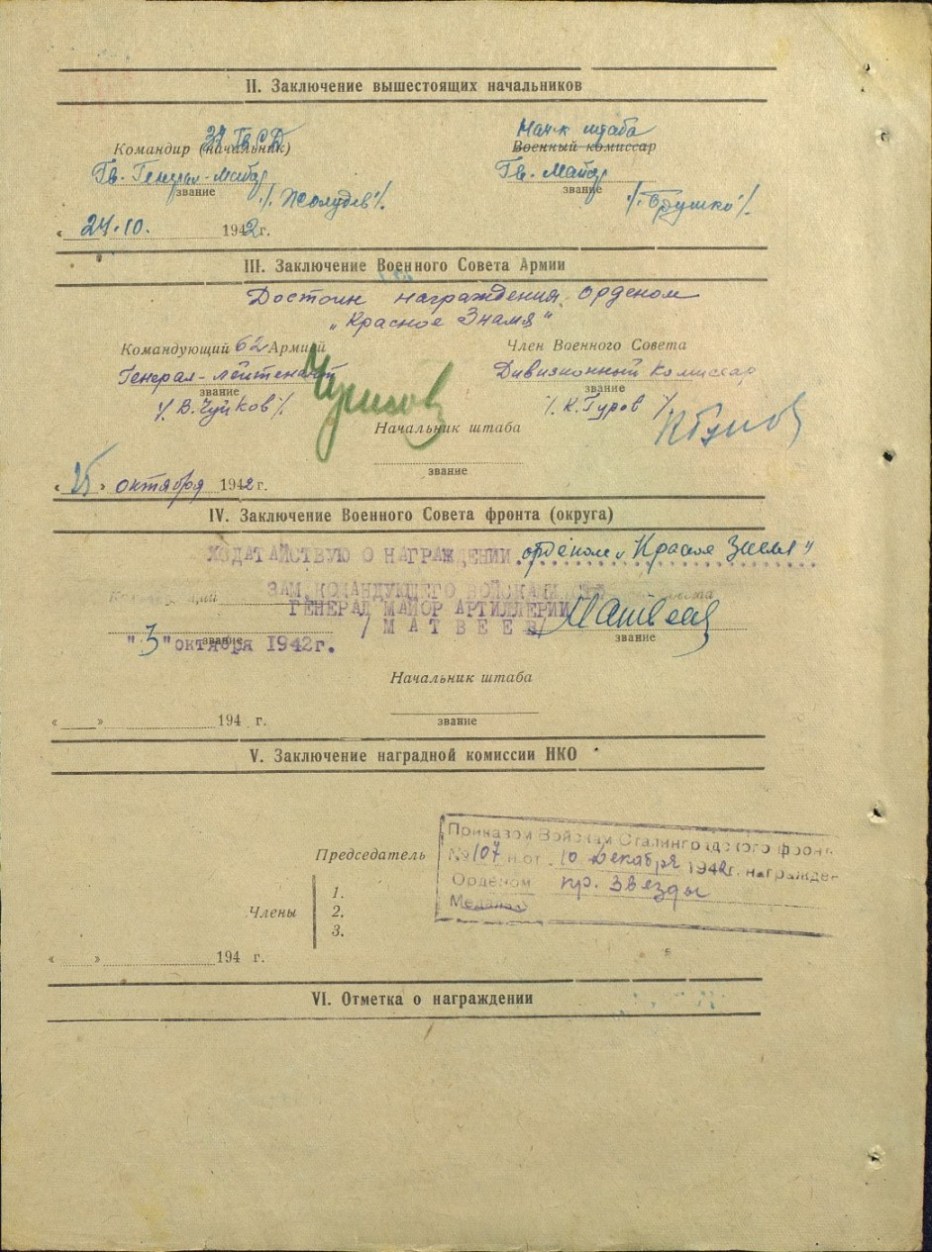 II. Заключение вышестоящих начальников
37 Гв.С.Д. Нач-к штаба
Командир (начальник) Военный комиссар
Гв. Генерал-Майор Гв. Майор
звание звание
/. Жолудев/. /. Брушко /.
« 24.10. 1942г.
III. Заключение Военного Совета Армии
Достоин награждения орденом
"Красное Знамя"
Командующий 62 Армией Член Военного Совета
Генерал-лейтенант Дивизионный Комиссар
звание звание
/. В. Чуйков /. Чуйков /. К. Гуров /. КГуров
Начальник штаба
звание
« 25 » октября 1942г.
IV. Заключение Военного Совета фронта (округа)
ХОДАТАЙСТВУЮ О НАГРАЖДЕНИИ орденом "Красное Знамя"
ЗАМ. КОМАНДУЮЩЕГО ВОЙСКАМИ
ГЕНЕРАЛ МАЙОР АРТИЛЛЕРИИ
/ М А Т В Е Е В / Матвеев
звание звание
"3" октября 1942г.
Начальник штаба
« » 194 г.
звание
V. Заключение наградной комиссии НКО
Приказом Войскам Сталинградского фронта
Председатель
№ 107 н от 10 декабря 1942г. награжден
Орденом кр. Звезды
Медалью
Члены
1.
2.
3.
« » 194 г.
VI. Отметка о награждении